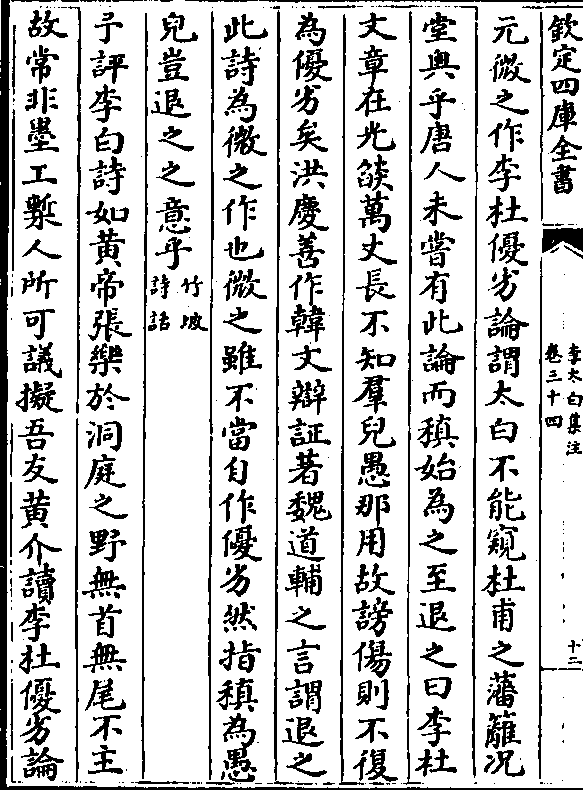 欽定四庫全書
李太白集注
卷三十四
十二
元微之作李杜優劣論謂太白不能窺杜甫之藩籬况
堂奥乎唐人未嘗有此論而稹始為之至退之曰李杜
文章在光燄萬丈長不知羣兒愚那用故謗傷則不復
為優劣矣洪慶善作韓文辯証著魏道輔之言謂退之
此詩為微之作也微之雖不當自作優劣然指稹為愚
兒豈退之之意乎竹坡
詩話
予評李白詩如黄帝張樂於洞庭之野無首無尾不主
故常非墨工槧人所可議擬吾友黄介讀李杜優劣論